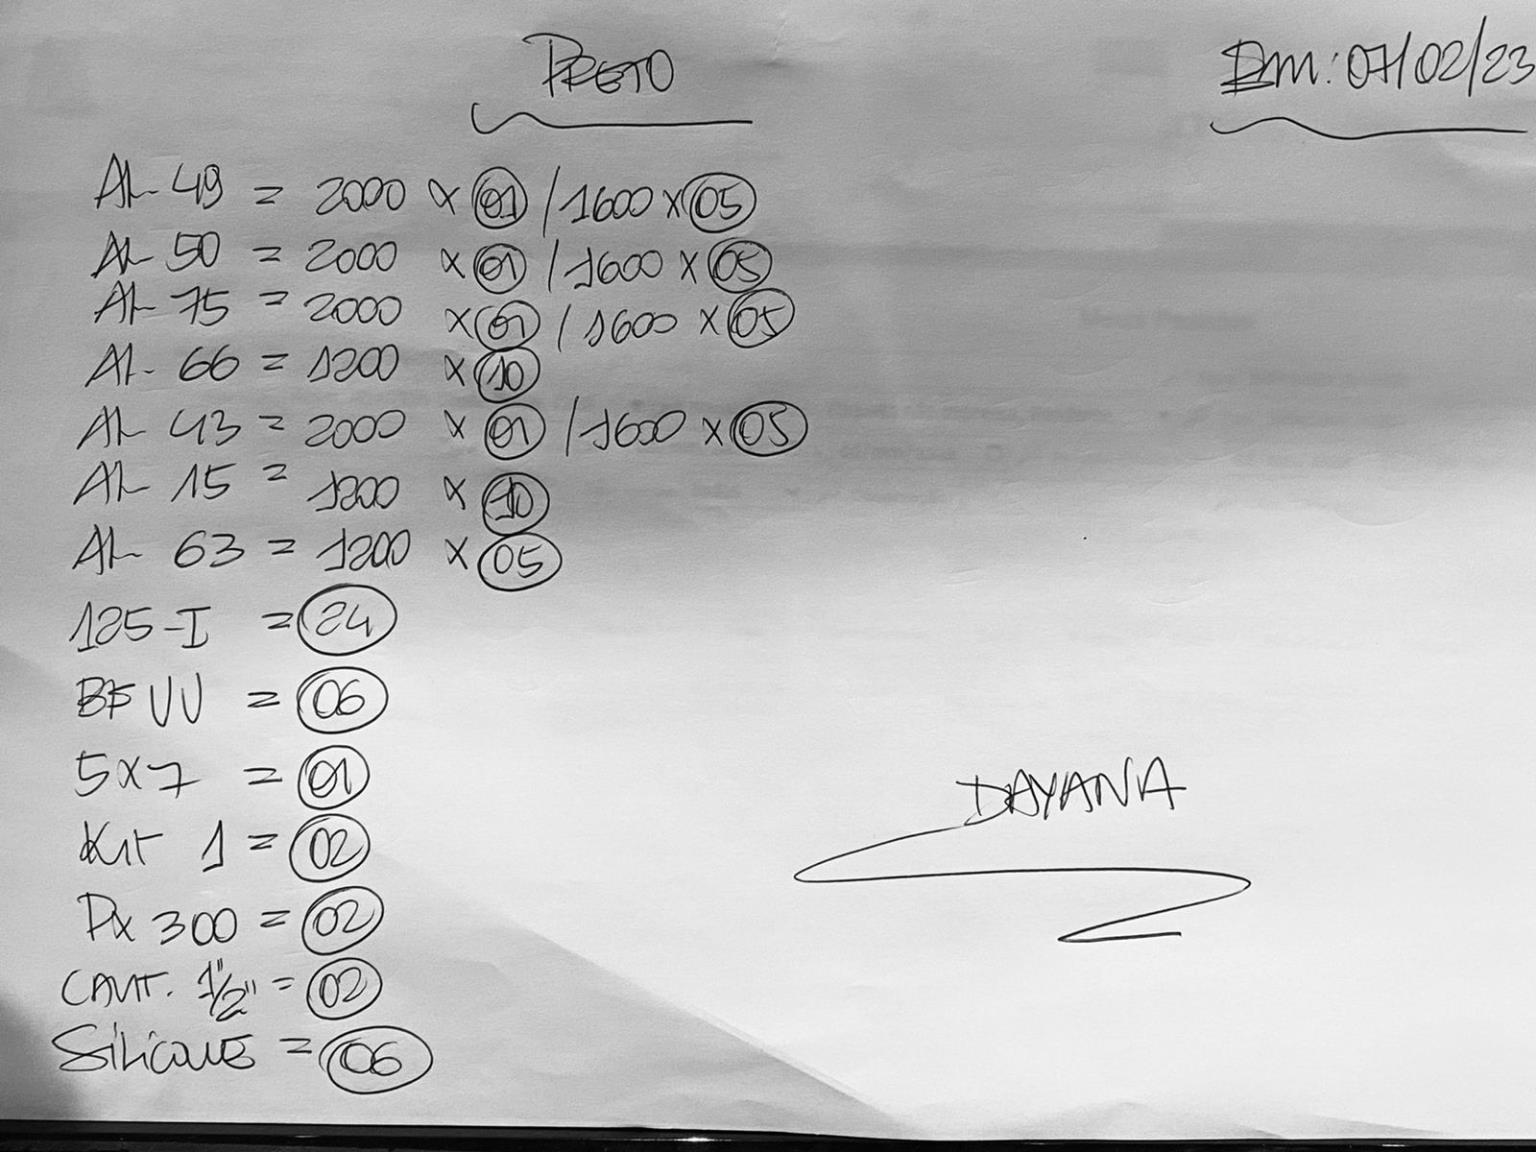 PRETO
Em: 07/02/23
AL-49 = 2000 x 01 / 1600 x 05
AL-50 = 2000 x 01 / 1600 x 05
AL-75 = 2000 x 01 / 1600 x 05
AL-66 = 1200 x 10
AL-43 = 2000 x 01 / 1600 x 05
AL-15 = 1200 x 10
AL-63 = 1200 x 05
125-I = 24
BF UU = 06
5x7 = 01
Kit 1 = 02
Px 300 = 02
DAYANA
CANT. 1"/2" = 02
Silicone = 06